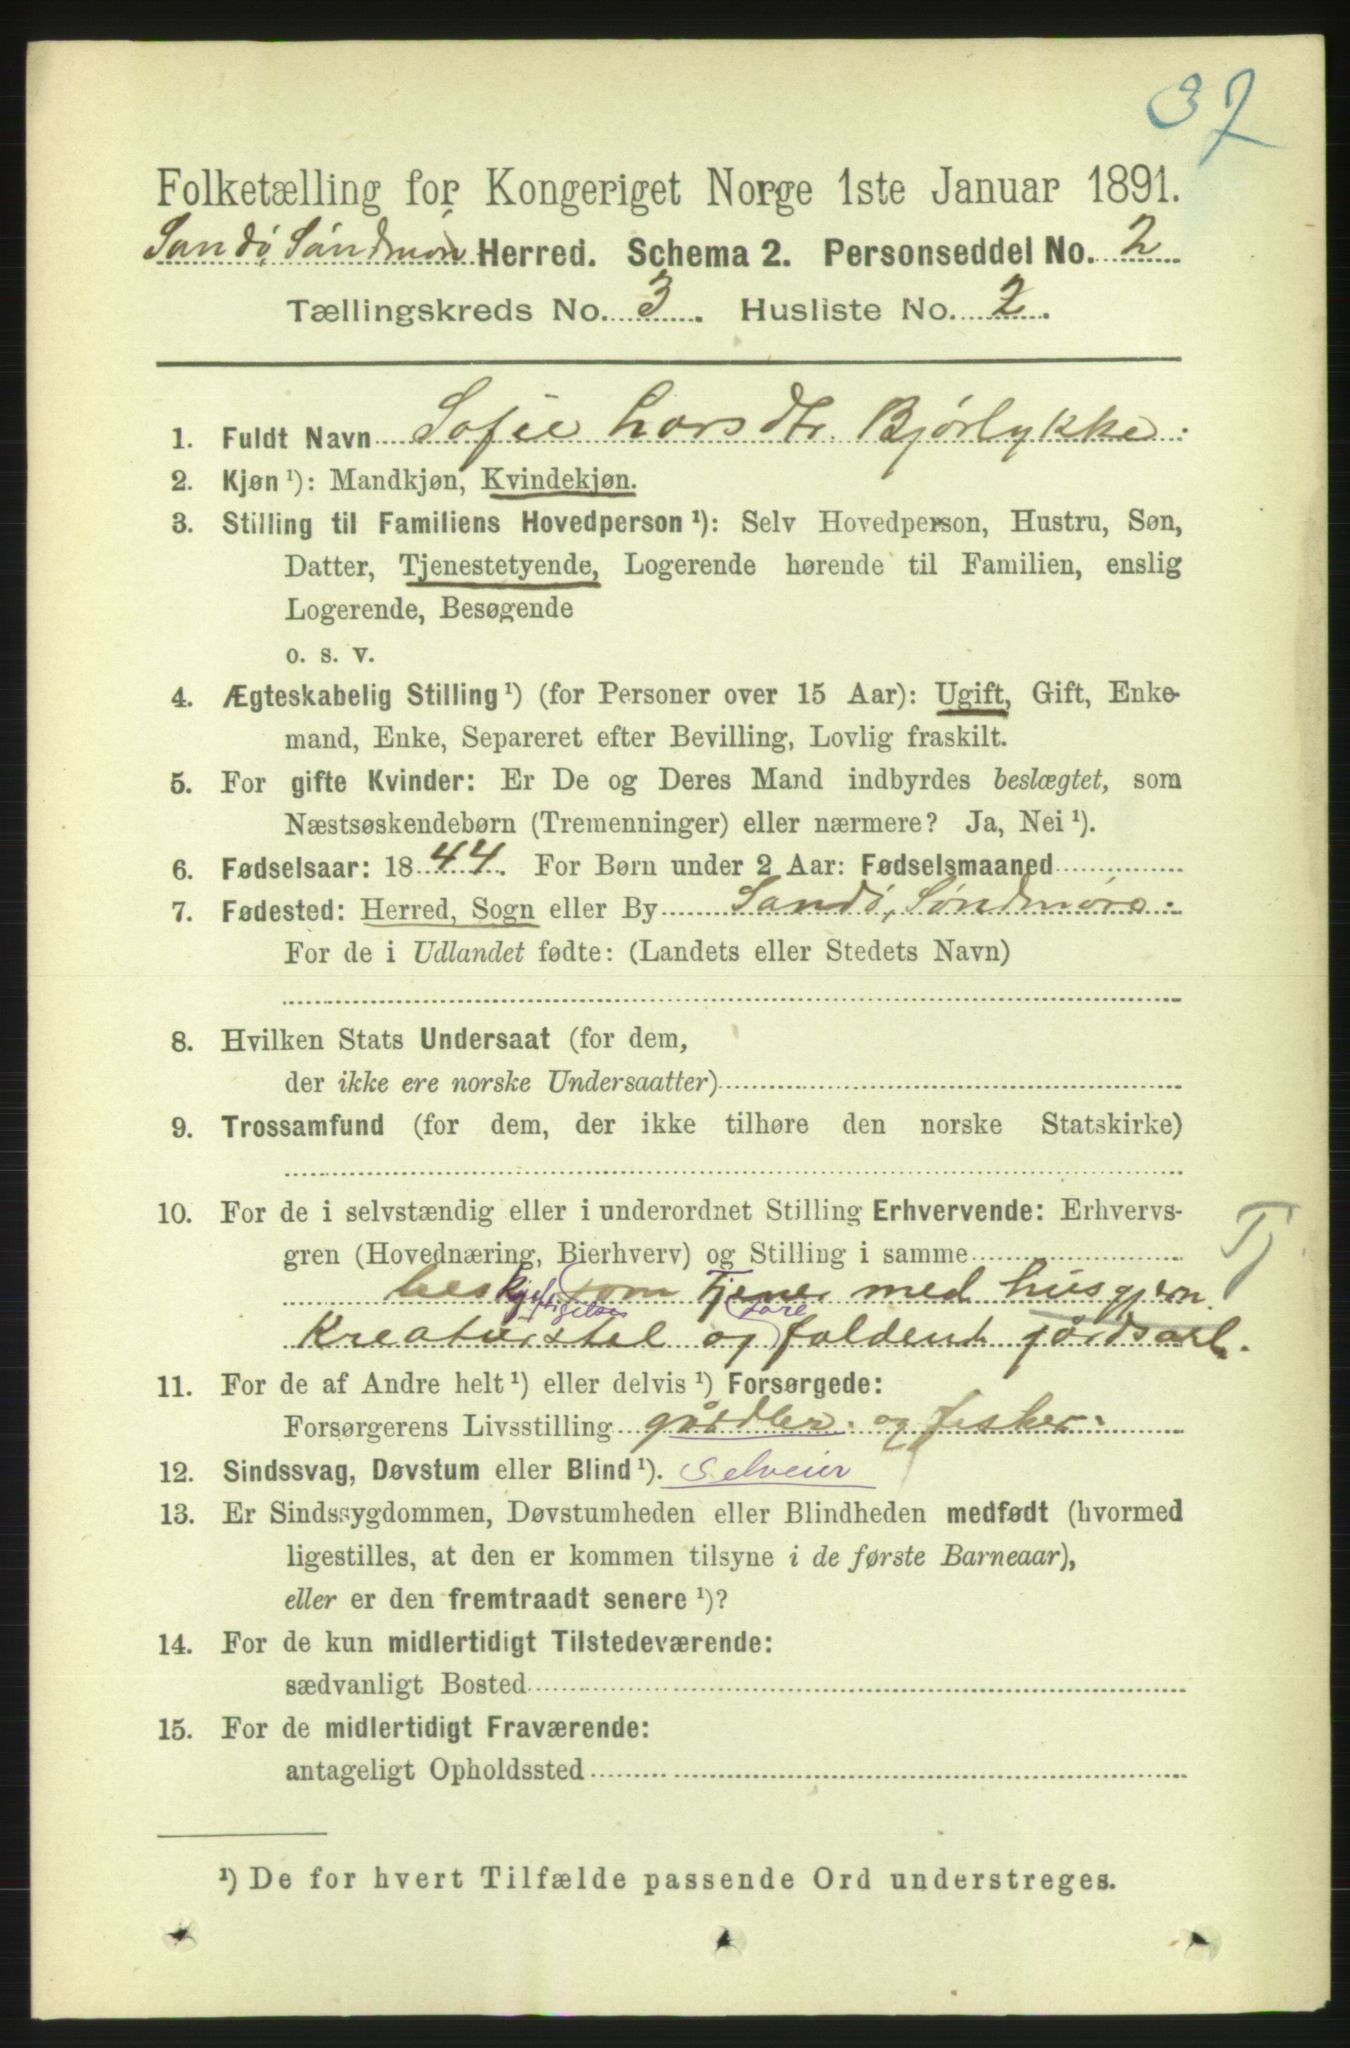 37
Folketælling for Kongeriget Norge 1ste Januar 1891.
Sandø, Søndmør Herred. Schema 2. Personseddel No. 2
Tællingskreds No. 3. Husliste No. 2.
1. Fuldt Navn Sofie Larsdtr. Bjørlykke.
2. Kjøn ¹): Mandkjøn, Kvindekjøn.
3. Stilling til Familiens Hovedperson ¹): Selv Hovedperson, Hustru, Søn,
Datter, Tjenestetyende, Logerende hørende til Familien, enslig
Logerende, Besøgende
o. s. v.
4. Ægteskabelig Stilling ¹) (for Personer over 15 Aar): Ugift, Gift, Enke-
mand, Enke, Separeret efter Bevilling, Lovlig fraskilt.
5. For gifte Kvinder: Er De og Deres Mand indbyrdes beslægtet, som
Næstsøskendebørn (Tremenninger) eller nærmere? Ja, Nei ¹).
6. Fødselsaar: 1844. For Børn under 2 Aar: Fødselsmaaned
7. Fødested: Herred, Sogn eller By Sandø, Søndmøre.
For de i Udlandet fødte: (Landets eller Stedets Navn)
8. Hvilken Stats Undersaat (for dem,
der ikke ere norske Undersaatter)
9. Trossamfund (for dem, der ikke tilhøre den norske Statskirke)
10. For de i selvstændig eller i underordnet Stilling Erhvervende: Erhvervs-
gren (Hovednæring, Bierhverv) og Stilling i samme
Tj
som Tjener med husgjern.
Kreaturstel og
11. For de af Andre helt ¹) eller delvis ¹) Forsørgede:
Forsørgerens Livsstilling gårdbr. og fisker.
12. Sindssvag, Døvstum eller Blind ¹). Selveier
13. Er Sindssygdommen, Døvstumheden eller Blindheden medfødt (hvormed
ligestilles, at den er kommen tilsyne i de første Barneaar),
eller er den fremtraadt senere ¹)?
14. For de kun midlertidigt Tilstedeværende:
sædvanligt Bosted
15. For de midlertidigt Fraværende:
antageligt Opholdssted
¹) De for hvert Tilfælde passende Ord understreges.